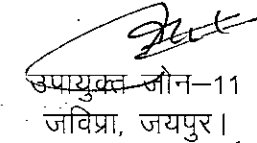 उपायुक्त जोन–11
जविप्रा, जयपुर।